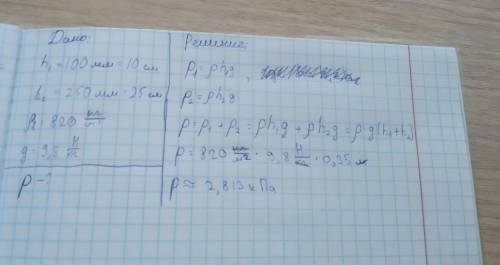 Дано:
h₁ = 100 мм = 10 см
h₂ = 250 мм = 25 см
ρ = 820 кг/м³
g = 9,8 Н/кг
p - ?
Решение:
p₁ = ρh₁g,
p₂ = ρh₂g
p = p₁ + p₂ = ρh₁g + ρh₂g = ρg(h₁+h₂)
p = 820 кг/м³ · 9,8 Н/кг · 0,35 м
p ≈ 2,813 кПа